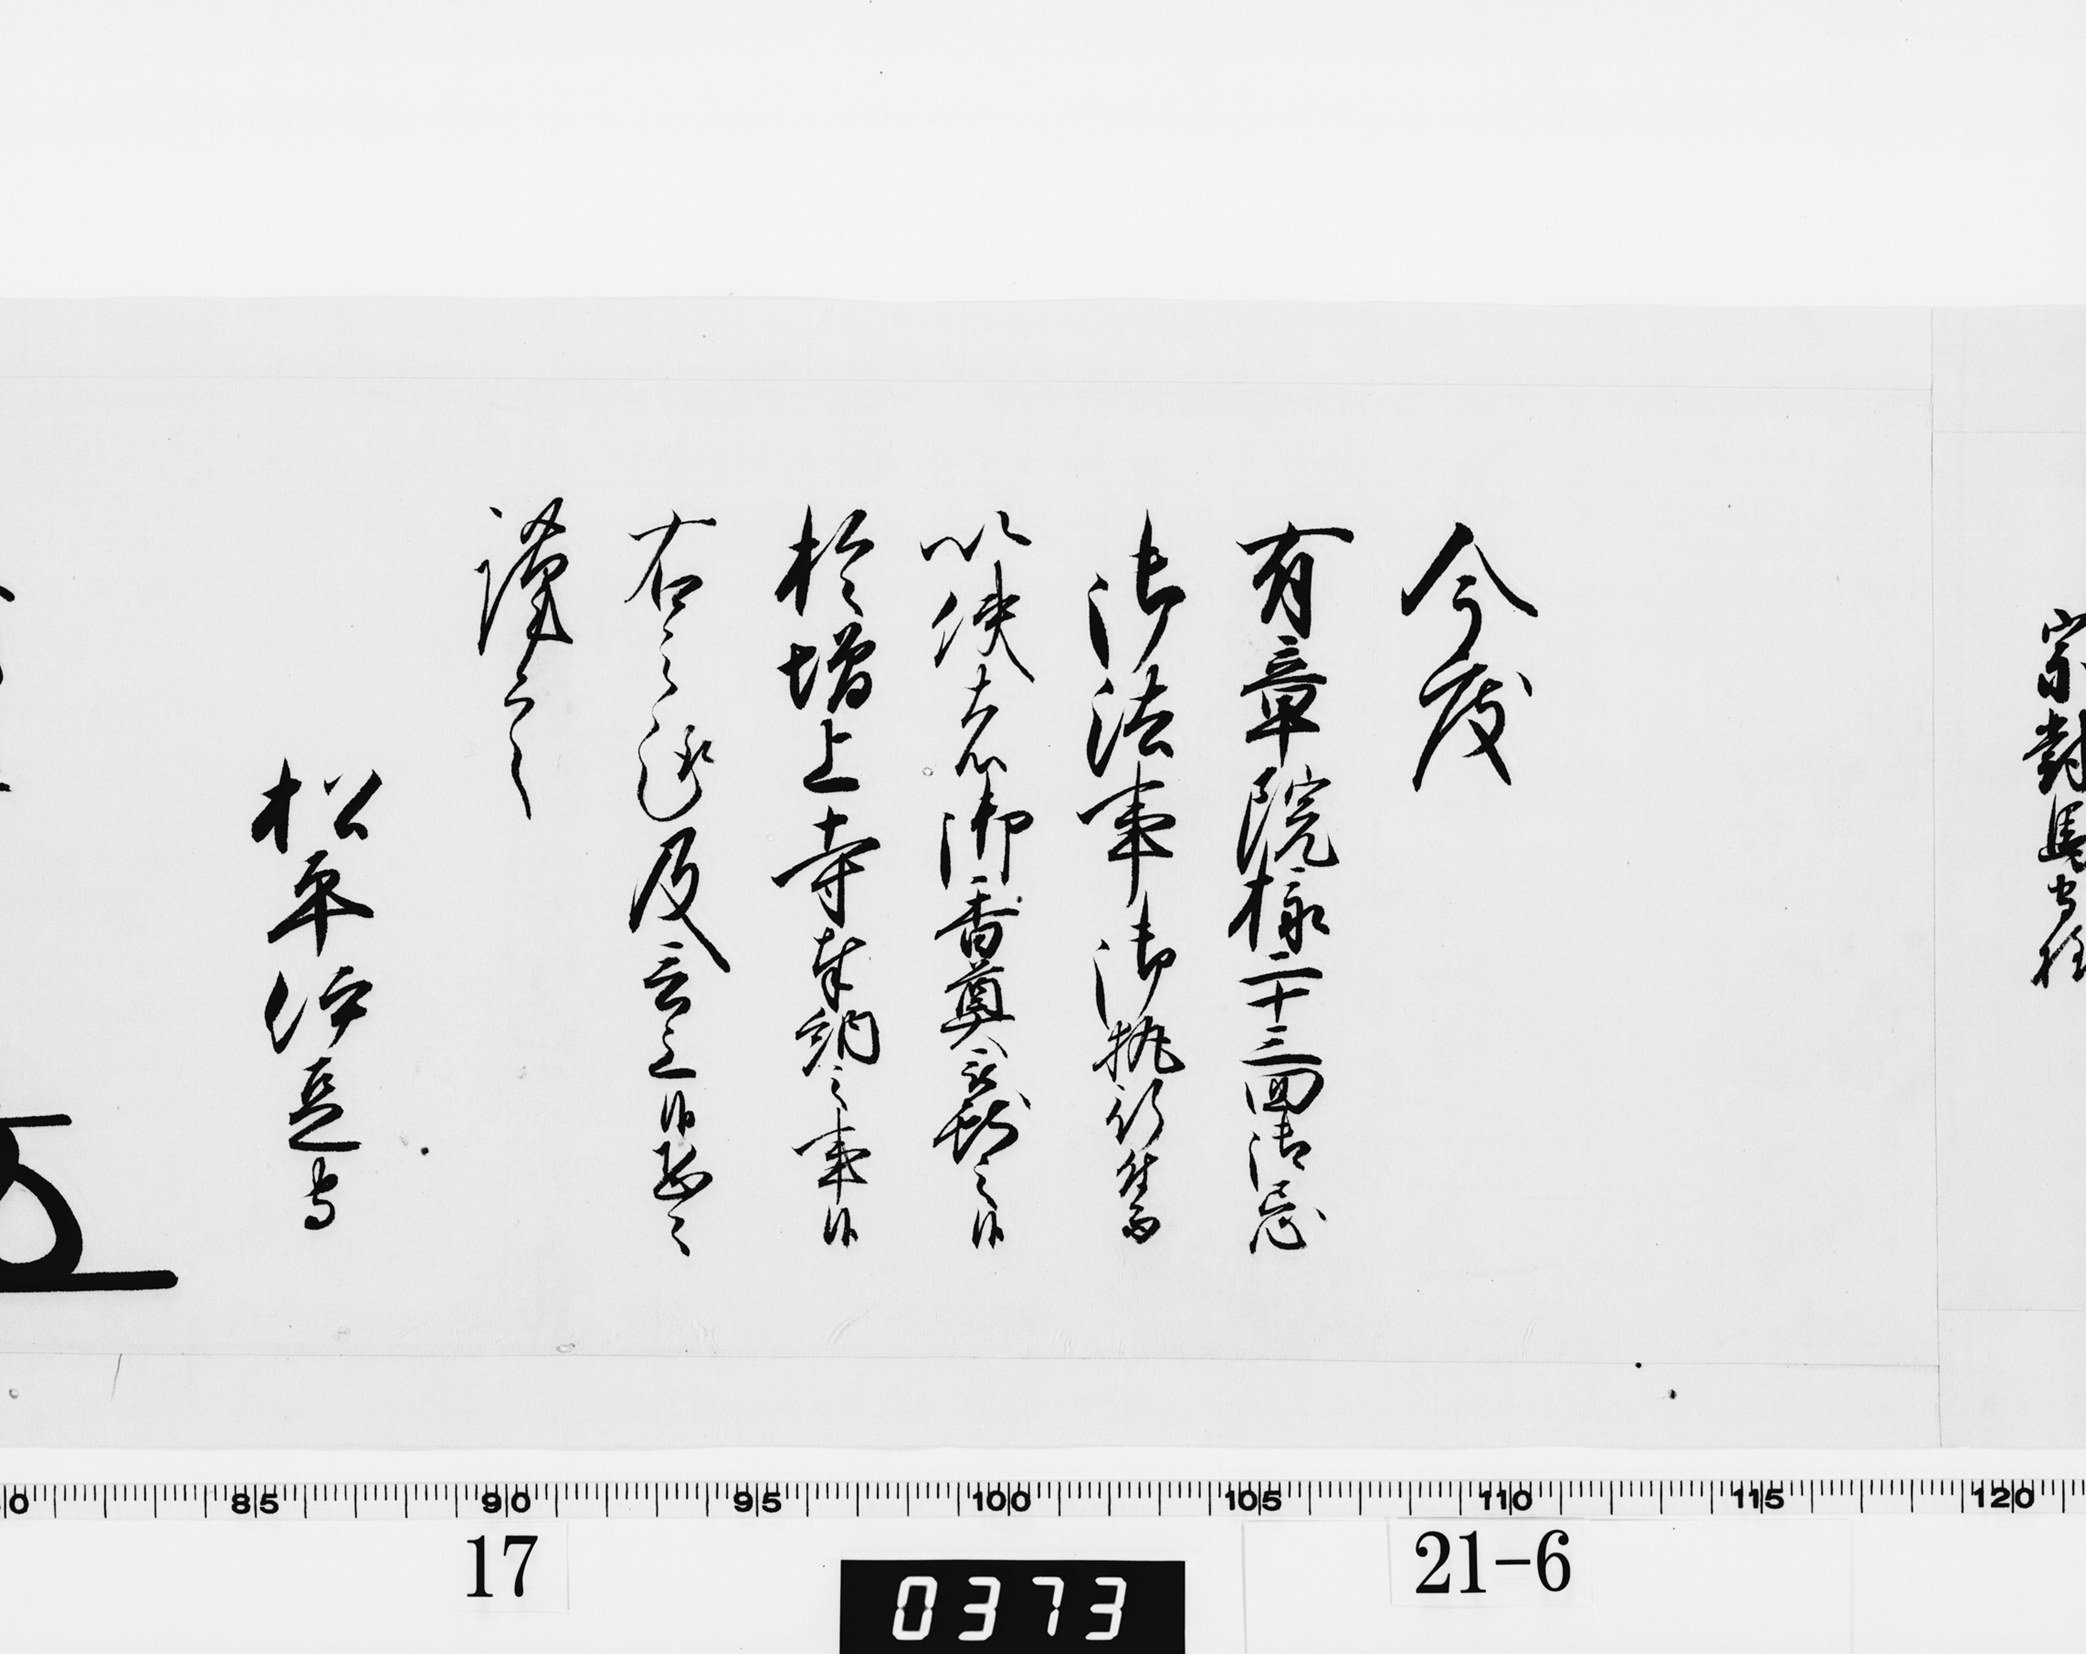 宗對馬守殿
今度
有章院様二十三回御忌
御法事御執行付而
以使者御香奠献之候
於増上寺奉納之事候
右之趣及言上候恐々
謹言
松平伊豆守
80 85 90 95 100 105 110 115 120
17
0373
21-6